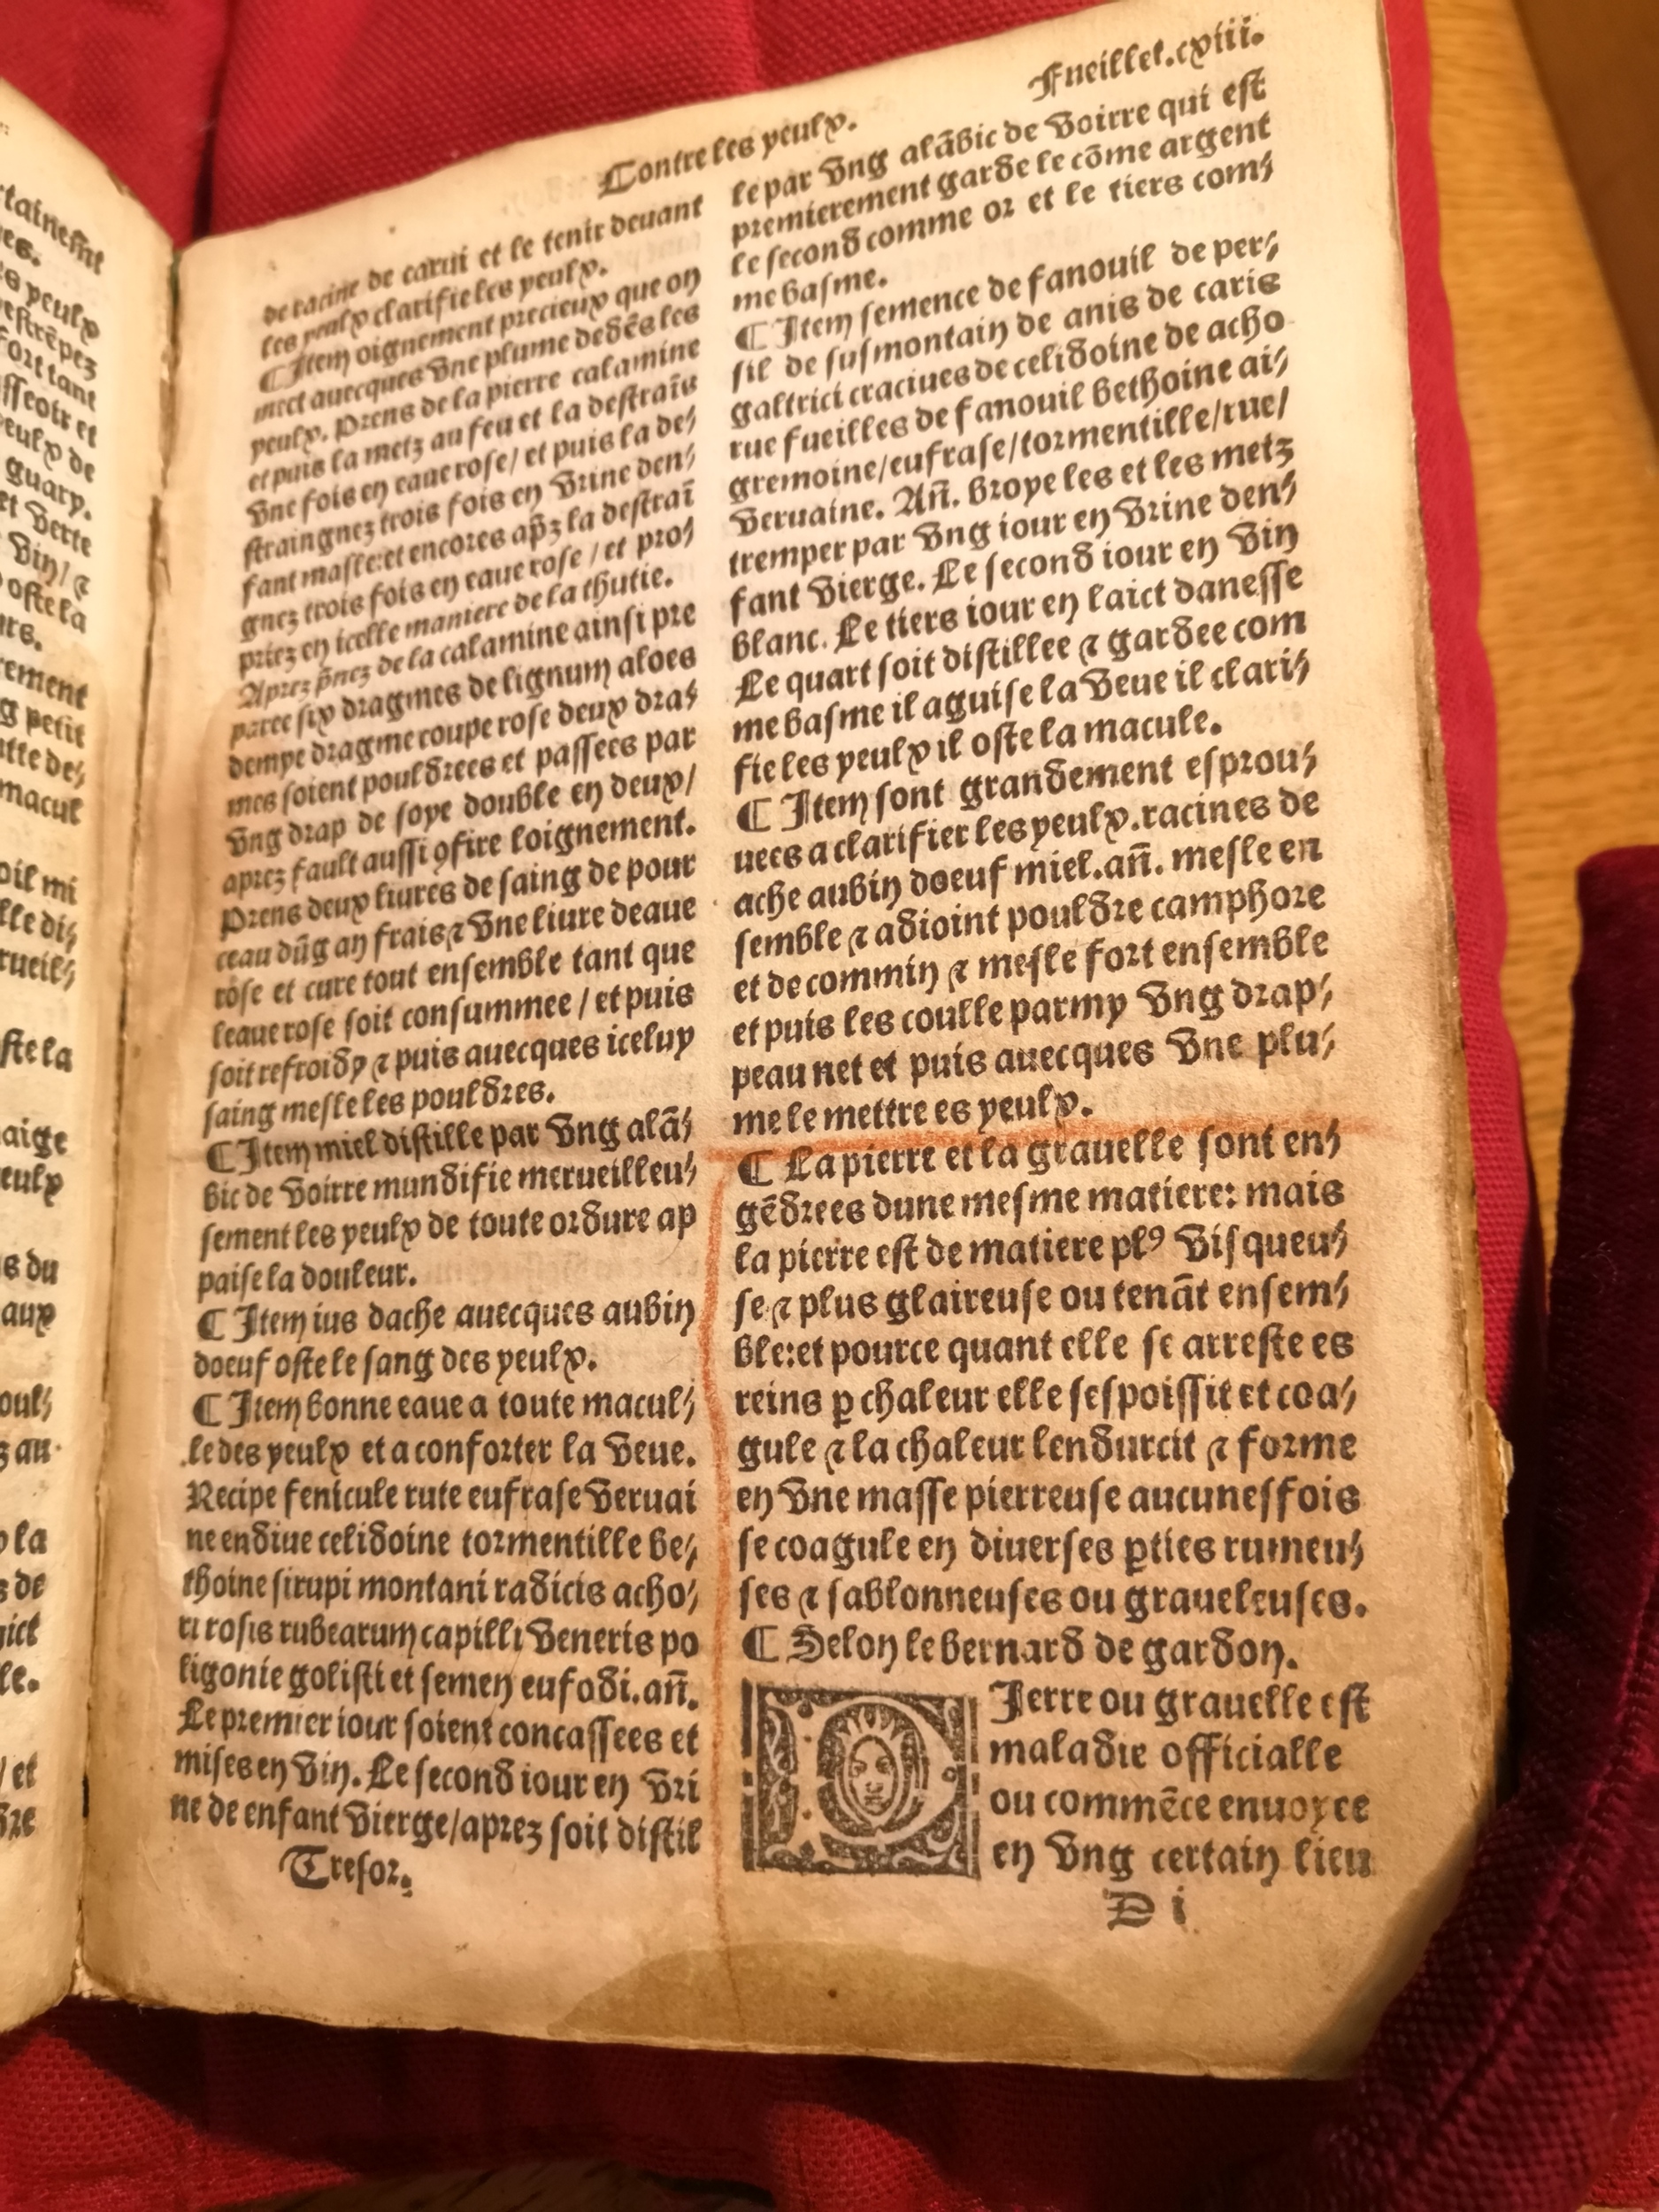 Contre les yeulx.
Fueillet.cxiii.
de racine de carui et le tenir deuant
les yeulx clarifie les yeulx.
¶ Item oignement precieux que on
mect auecques vne plume dedẽs les
yeulx. Prens de la pierre calamine
et puis la metz au feu et la destraĩs
vne fois en eaue rose/ et puis la de⸗
straingnez trois fois en vrine den⸗
fant masle:et encores ap̃z la destraĩ
gnez trois fois en eaue rose / et pro⸗
priez en icelle maniere de la thutie.
Aprez p̃nez de la calamine ainsi pre
paree six dragmes de lignum aloes
dempe dragme coupe rose deux dra⸗
mes soient pouldrees et passees par
vng drap de soye double en deux/
aprez fault aussi ꝯfire loignement.
Prens deux liures de saing de pour
ceau dũg an frais ⁊ vne liure deaue
rose et cure tout ensemble tant que
leaue rose soit consummee / et puis
soit refroidy ⁊ puis auecques iceluy
saing mesle les pouldres.
¶ Item miel distille par vng alã⸗
bic de voirre mundifie merueilleu⸗
sement les yeulx de toute ordure ap
paise la douleur.
¶ Item ius dache auecques aubin
doeuf oste le sang des yeulx.
¶ Item bonne eaue a toute macul⸗
le des yeulx et a conforter la veue.
Recipe fenicule rute eufrase veruai
ne endiue celidoine tormentille be⸗
thoine sirupi montani radicis acho⸗
ri rosis rubearum capilli veneris po
ligonie golisti et semen eufodi.añ.
Le premier iour soient concassees et
mises en vin. Le second iour en vri
ne de enfant vierge/aprez soit distil
Tresor.
le par vng alãbic de voirre qui est
premierement garde le cõme argent
le second comme or et le tiers com⸗
me basme.
¶ Item semence de fanouil de per⸗
sil de susmontain de anis de caris
galtrici craciues de celidoine de acho
rue fueilles de fanouil bethoine ai⸗
gremoine/eufrase/tormentille/rue/
veruaine. Añ. broye les et les metz
tremper par vng iour en vrine den⸗
fant vierge. Le second iour en vin
blanc. Le tiers iour en laict danesse
Le quart soit distillee ⁊ gardee com
me basme il aguise la veue il clari⸗
fie les yeulx il oste la macule.
¶ Item sont grandement esprou⸗
uees a clarifier les yeulx.racines de
ache aubin doeuf miel.añ. mesle en
semble ⁊ adioint pouldre camphore
et de commin ⁊ mesle fort ensemble
et puis les coulle parmy vng drap⸗
peau net et puis auecques vne plu⸗
me le mettre es yeulx.
¶ La pierre et la grauelle sont en⸗
gẽdrees dune mesme matiere: mais
la pierre est de matiere plꝰ visqueu⸗
se ⁊ plus glaireuse ou tenãt ensem⸗
ble:et pource quant elle se arreste es
reins ꝑ chaleur elle sespoissit et coa⸗
gule ⁊ la chaleur lendurcit ⁊ forme
en vne masse pierreuse aucuneffois
se coagule en diuerses ꝑties rumeu⸗
ses ⁊ sablonneuses ou graueleuses.
¶ Selon le bernard de gardon.
PIerre ou grauelle est
maladie officialle
ou commẽce enuoyee
en vng certain lieu
D i